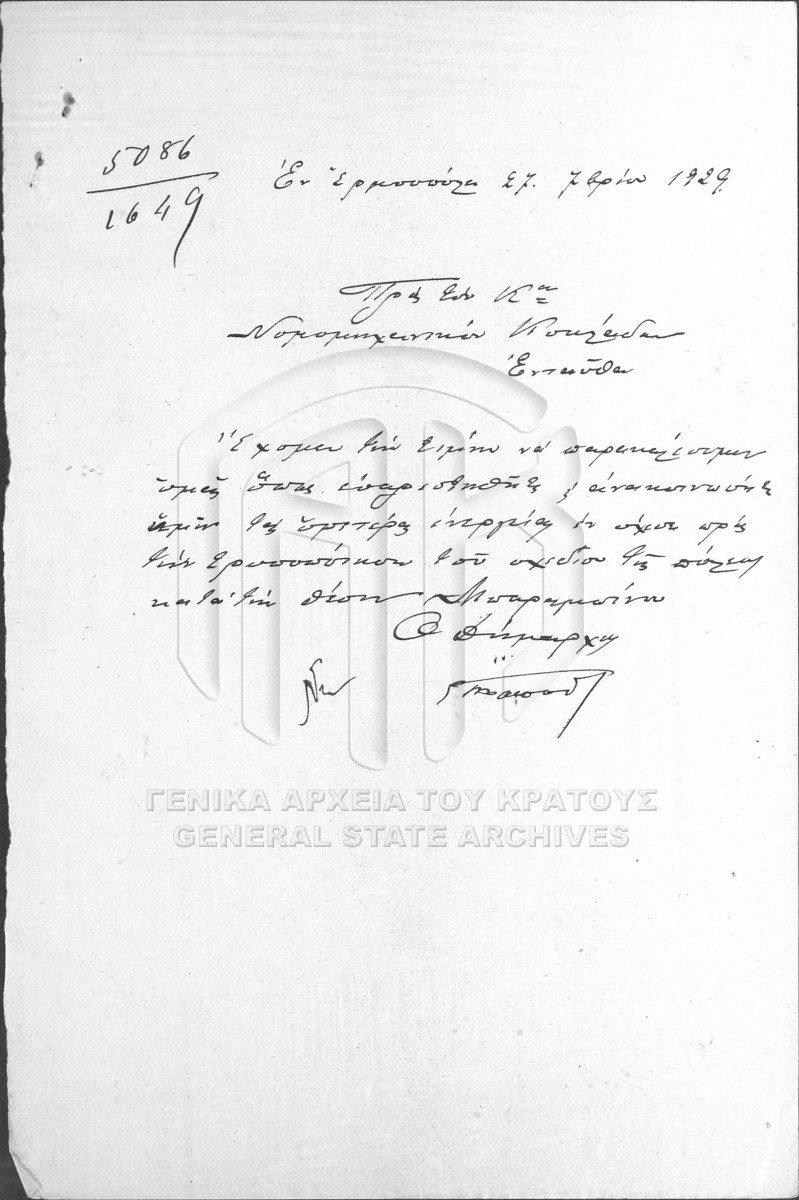 5086
1649
Ἐν Ἑρμουπόλει 27. 7βρίου 1929.
Πρὸς τὸν Κον
Νομομηχανικὸν Κυκλάδων
Ἐνταῦθα
Ἔχομεν τὴν τιμὴν νὰ παρακαλέσωμεν
ὑμᾶς ὅπως εὐαρεστηθῆτε ἀνακοινώσητε
ἡμῖν τὰς ὑμετέρας ἐνεργείας ἐν σχέσει πρὸς
τὴν τροποποίησιν τοῦ σχεδίου τῆς πόλεως
κατὰ τὴν θέσιν
Ὁ Δήμαρχος
ΓΕΝΙΚΑ ΑΡΧΕΙΑ ΤΟΥ ΚΡΑΤΟΥΣ
GENERAL STATE ARCHIVES